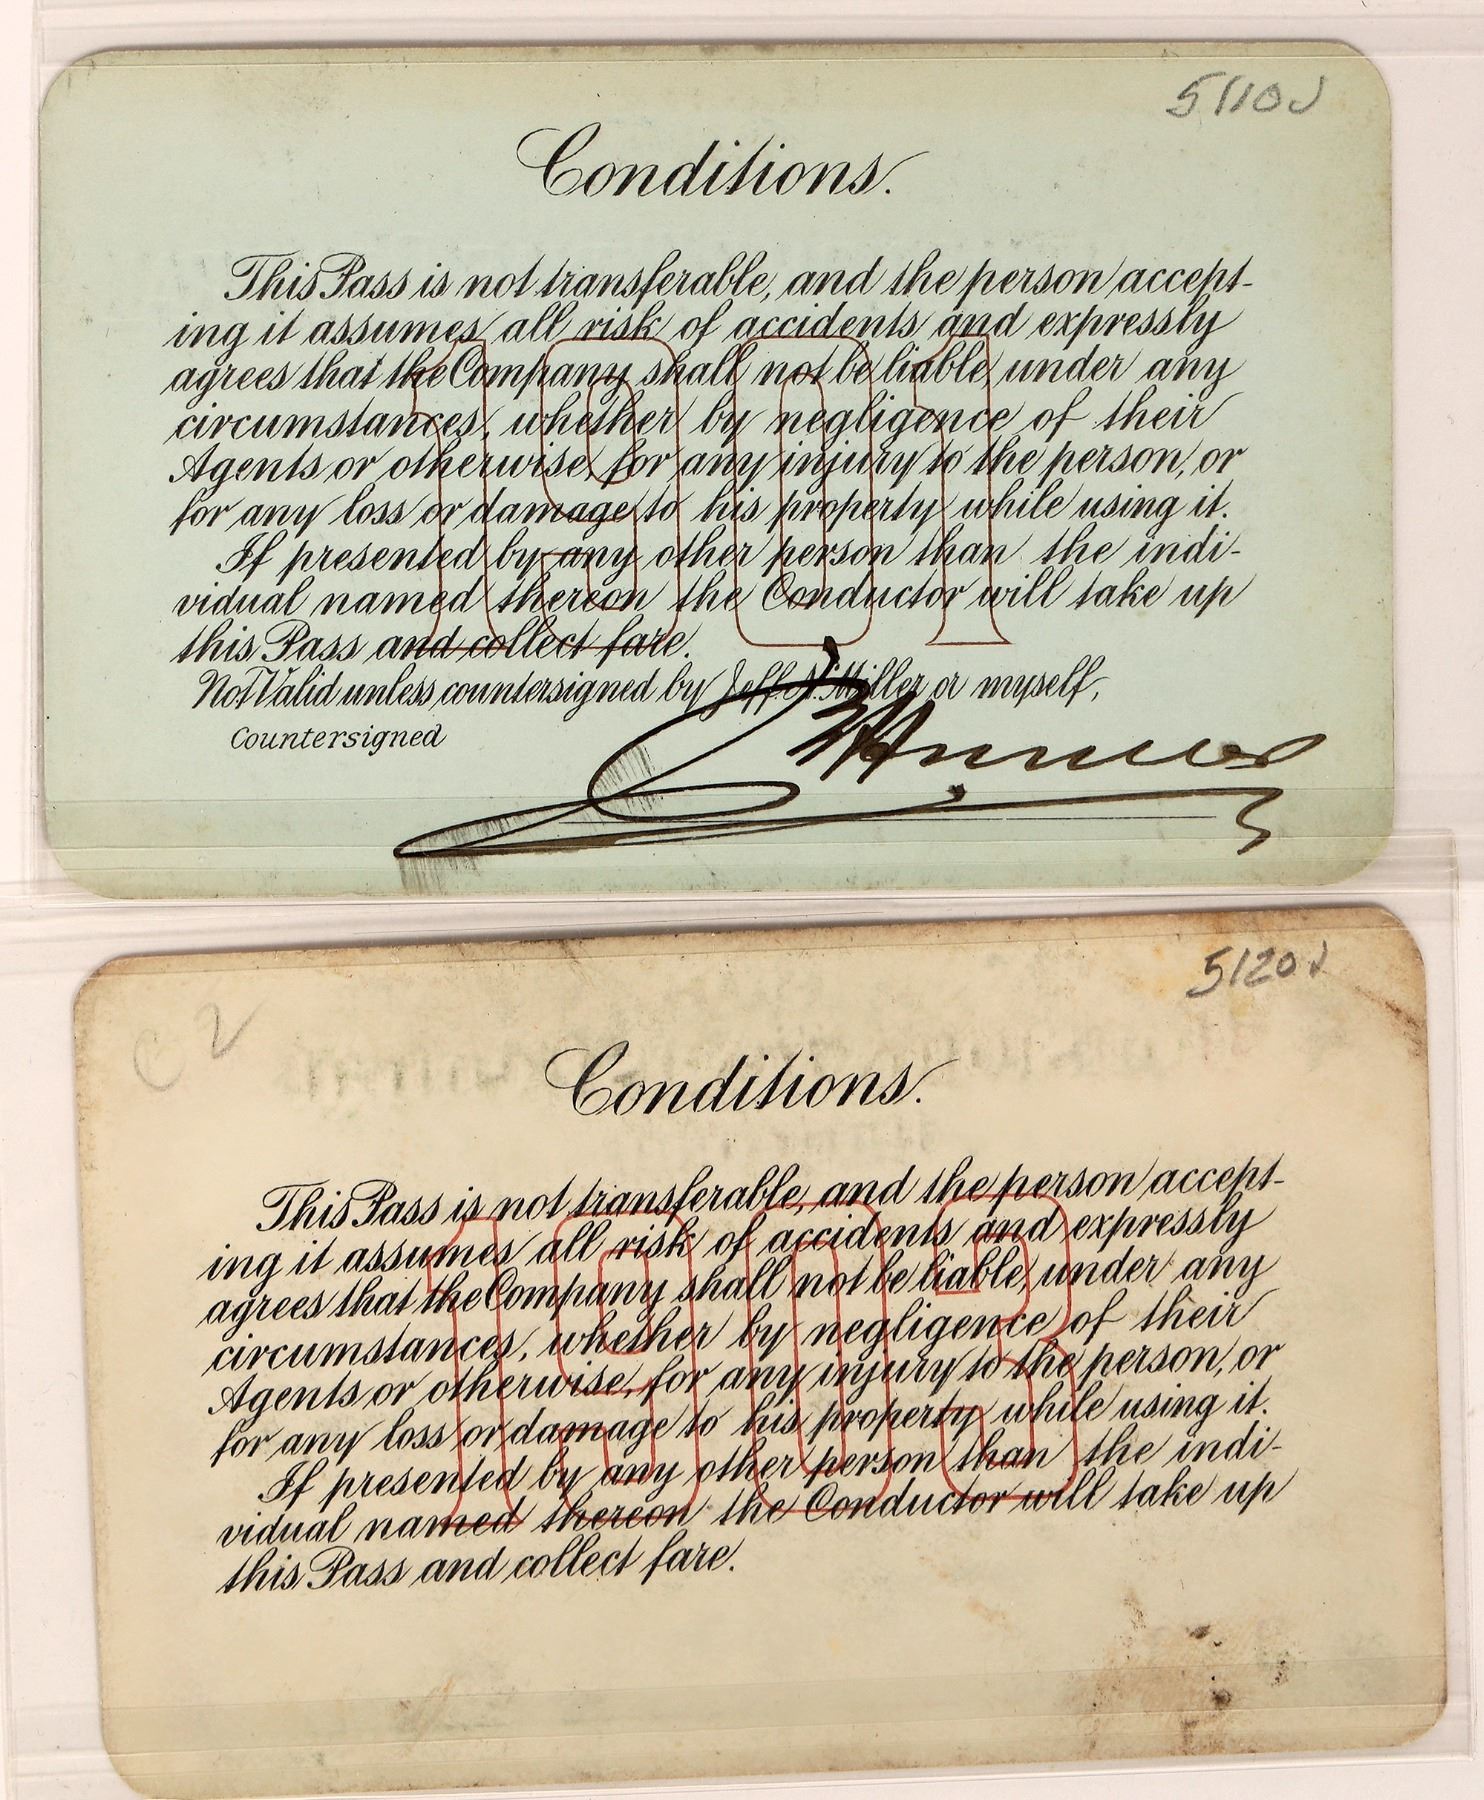 5110J
Conditions.
This Pass is not transferable, and the person accept-
ing it assumes all risk of accidents and expressly
agrees that the Company shall not be liable under any
circumstances, whether by negligence of their
Agents or otherwise, for any injury to the person, or
for any loss or damage to his property while using it.
If presented by any other person than the indi-
vidual named thereon the Conductor will take up
this Pass and collect fare.
1901
Not Valid unless countersigned by Jeff. N. Miller or myself,
Countersigned
5120J
C 2
Conditions.
This Pass is not transferable, and the person accept-
ing it assumes all risk of accidents and expressly
agrees that the Company shall not be liable under any
circumstances, whether by negligence of their
Agents or otherwise, for any injury to the person, or
for any loss or damage to his property while using it.
If presented by any other person than the indi-
vidual named thereon the Conductor will take up
this Pass and collect fare.